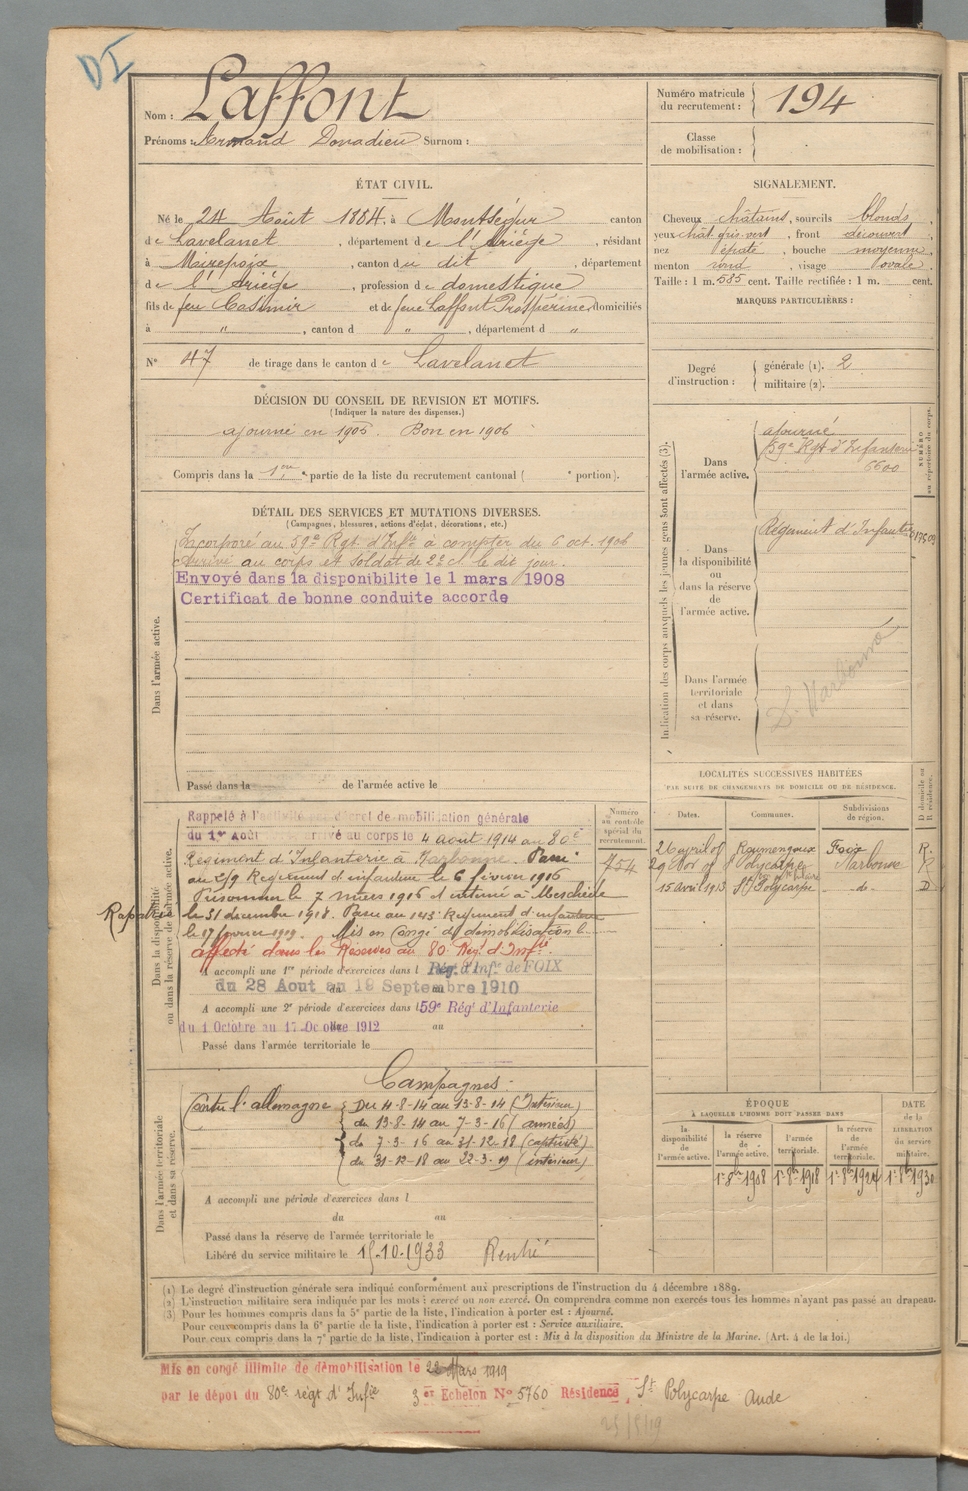 DI
Nom : Laffont
Prénoms : Armand Donadieu Surnom :
Numéro matricule du recrutement : 194
Classe de mobilisation :
ÉTAT CIVIL.
Né le 24 Août 1884. à Montségur canton
de Lavelanet, département de l'Ariège, résidant
à Mirepoix, canton du dit, département
de l'Ariège, profession de domestique
fils de feu Casimir et de feue Laffont Prospérine domiciliés
à " , canton d " , département d "
N° 47 de tirage dans le canton de Lavelanet
SIGNALEMENT.
Cheveux châtains, sourcils blonds,
yeux chât. gris-vert, front découvert,
nez épaté, bouche moyenne,
menton rond, visage ovale.
Taille : 1 m. 585 cent. Taille rectifiée : 1 m. cent.
MARQUES PARTICULIÈRES :
Degré d'instruction :
générale (1). 2
militaire (2).
DÉCISION DU CONSEIL DE REVISION ET MOTIFS.
(Indiquer la nature des dispenses.)
ajourné en 1905 Bon en 1906
Compris dans la 1ère partie de la liste du recrutement cantonal ( e portion).
DÉTAIL DES SERVICES ET MUTATIONS DIVERSES.
(Campagnes, blessures, actions d'éclat, décorations, etc.)
Dans l'armée active.
Incorporé au 59e Rgt d'Infie à compter du 6 oct. 1906
Arrivé au corps et soldat de 2e cl le dit jour.
Envoyé dans la disponibilite le 1 mars 1908
Certificat de bonne conduite accorde
Passé dans la de l'armée active le
Indication des corps auxquels les jeunes gens sont affectés (3).
NUMÉRO au répertoire du corps.
Dans l'armée active.
ajourné
59e Rgt d'Infanterie
6600
Dans la disponibilité ou dans la réserve de l'armée active.
Régiment d'Infanterie
Dans l'armée territoriale et dans sa réserve.
Dans la disponibilité ou dans la réserve de l'armée active.
Numéro au contrôle spécial du recrutement.
754
Rappelé à l'activité décret de mobilisation générale
du 1er Août arrivé au corps le 4 août 1914 au 80e
Régiment d'Infanterie à Narbonne. Passé
au 2/9 Régiment d'infanterie le 6 février 1916
Prisonnier le 7 mars 1916 et interné à Meschede
Rapatrié le 31 décembre 1918. Passé au 143e Régiment d'infanterie
le 17 février 1919. Mis en Congé de démobilisation l
affecté dans les Réserves au 80 Rég. d'Infie.
A accompli une 1re période d'exercices dans l Rég. d'Infie de FOIX
du 28 Aout au 19 Septembre 1910
A accompli une 2e période d'exercices dans l 59e Régt d'Infanterie
du 1 Octobre au 17 Octobre 1912 au
Passé dans l'armée territoriale le
LOCALITÉS SUCCESSIVES HABITÉES
PAR SUITE DE CHANGEMENTS DE DOMICILE OU DE RÉSIDENCE.
D domicile ou R résidence.
Dates. Communes. Subdivisions de région.
26 avril 08 Roumengoux Foix R.
29 Nov 08 Polycarpe Narbonne R
15 avril 1913 St Polycarpe -d- D
Dans l'armée territoriale et dans sa réserve.
Campagnes.
Contre l'allemagne
Du 4-8-14 au 13-8-14 (Intérieur)
du 13-8-14 au 7-3-16 (armées)
du 7-3-16 au 31-12-18 (captivité)
du 31-12-18 au 22-3-19 (intérieur)
A accompli une période d'exercices dans l
du au
Passé dans la réserve de l'armée territoriale le
Libéré du service militaire le 15-10-1933
ÉPOQUE
À LAQUELLE L'HOMME DOIT PASSER DANS
la disponibilité de l'armée active.
la réserve de l'armée active.
l'armée territoriale.
la réserve de l'armée territoriale.
DATE de la LIBÉRATION du service militaire.
1er 8bre 1908 1er 8bre 1918 1er 8bre 1924 1er 8bre 1930
(1) Le degré d'instruction générale sera indiqué conformément aux prescriptions de l'instruction du 4 décembre 1889.
(2) L'instruction militaire sera indiquée par les mots : exercé ou non exercé. On comprendra comme non exercés tous les hommes n'ayant pas passé au drapeau.
(3) Pour les hommes compris dans la 5e partie de la liste, l'indication à porter est : Ajourné.
Pour ceux compris dans la 6e partie de la liste, l'indication à porter est : Service auxiliaire.
Pour ceux compris dans la 7e partie de la liste, l'indication à porter est : Mis à la disposition du Ministre de la Marine. (Art. 4 de la loi.)
Mis en congé illimite de démobilisation le 22 Mars 1919
par le dépot du 80e régt d'Infie 3er Echelon N° 5760 Résidence St Polycarpe Aude